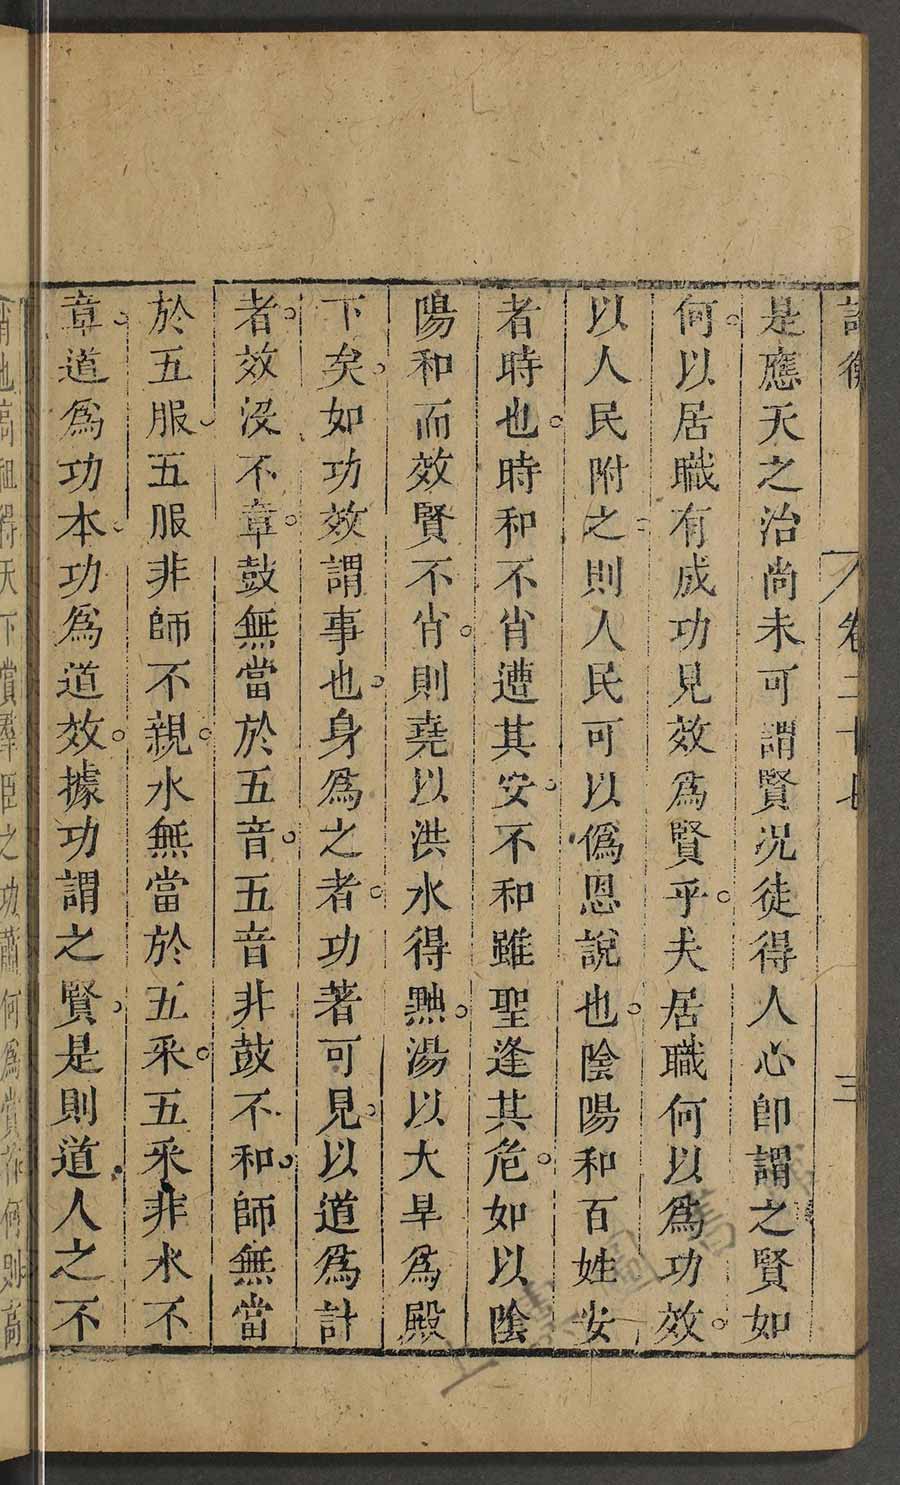 論衡 卷二十七 三
是應天之治尚未可謂賢况徒得人心即謂之賢如
何以居職有成功見效爲賢乎夫居職何以爲功效
以人民附之則人民可以僞恩說也隂陽和百姓安
者時也時和不肖遭其安不和雖聖逢其危如以隂
陽和而效賢不肖則堯以洪水得黜湯以大旱爲殿
下矣如功效謂事也身爲之者功著可見以道爲計
者效没不章鼓無當於五音五音非鼓不和師無當
於五服五服非師不親水無當於五采五采非水不
章道爲功本功爲道效據功謂之賢是則道人之不
肖也高祖得天下賞羣臣之功蕭何爲賞首何則高